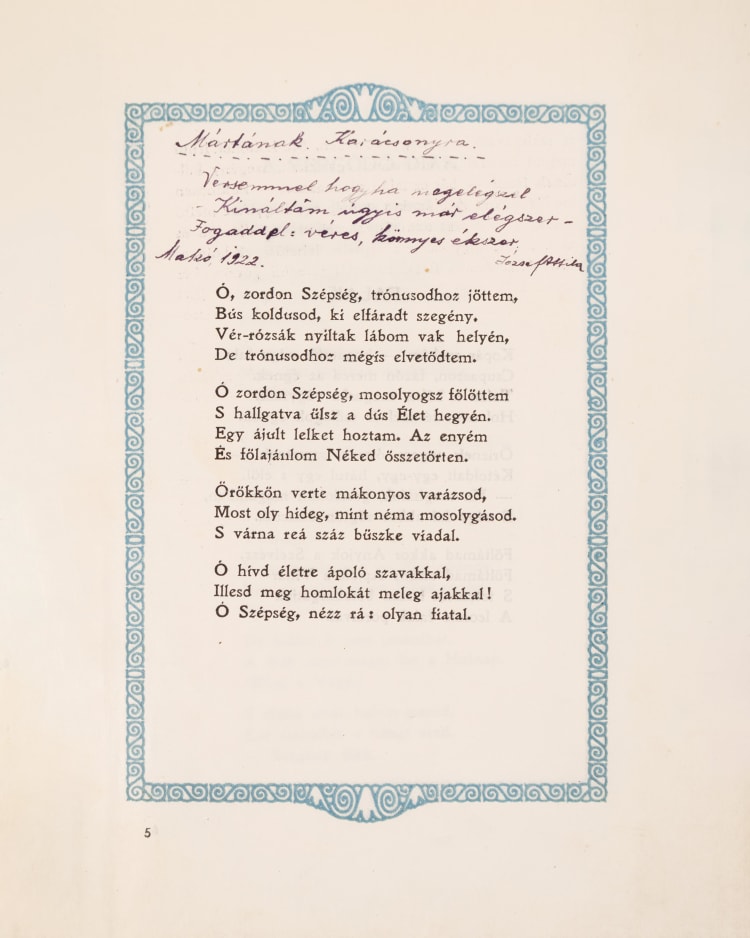 Mártának Karácsonyra.
Versemmel hogyha megelégszel
- Kináltam úgyis már elégszer -
Fogaddel: véres, könnyes ékszer.
Makó, 1922. József Attila
Ó, zordon Szépség, trónusodhoz jöttem,
Bús koldusod, ki elfáradt szegény.
Vér-rózsák nyiltak lábom vak helyén,
De trónusodhoz mégis elvetődtem.
Ó zordon Szépség, mosolyogsz fölöttem
S hallgatva ülsz a dús Élet hegyén.
Egy ájult lelket hoztam. Az enyém
És fölajánlom Néked összetörten.
Örökkön verte mákonyos varázsod,
Most oly hideg, mint néma mosolygásod.
S várna reá száz büszke viadal.
Ó hívd életre ápoló szavakkal,
Illesd meg homlokát meleg ajakkal!
Ó Szépség, nézz rá: olyan fiatal.
5